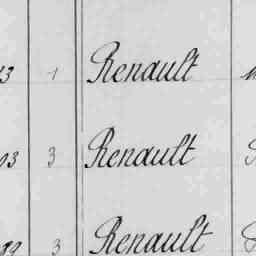 13 1 Renault
03 3 Renault
89 3 Renault